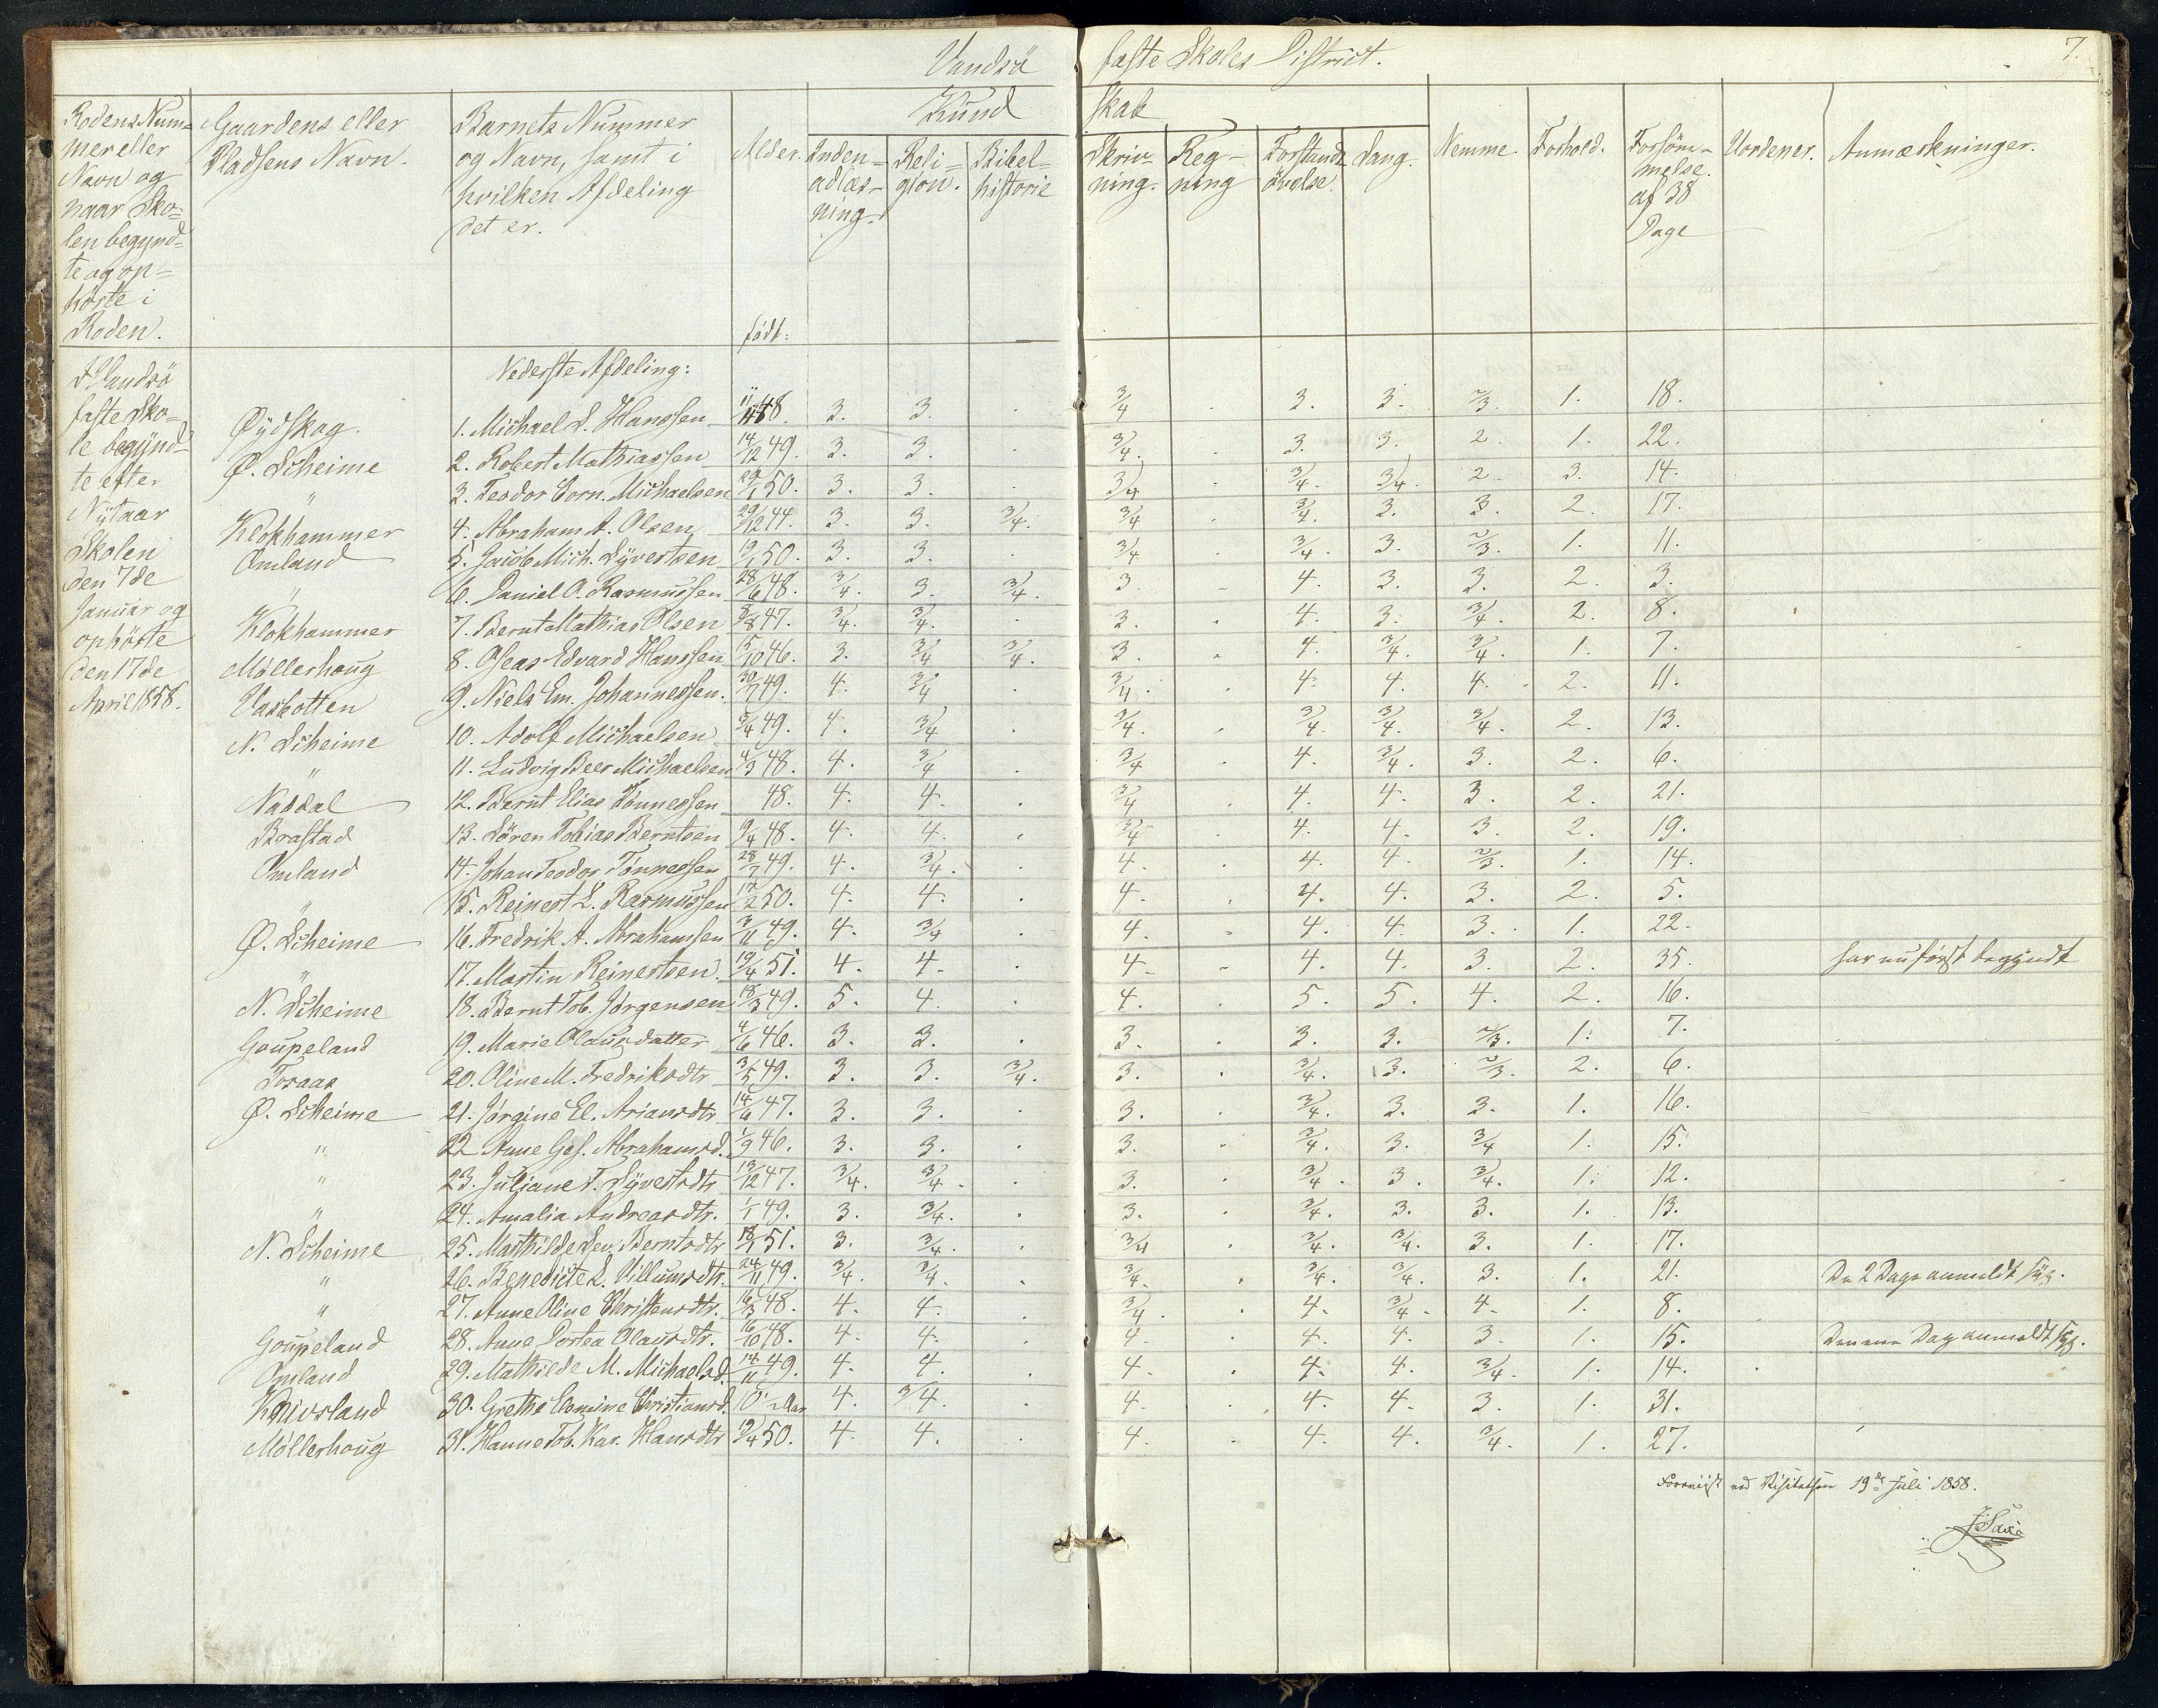 Vandsö faste Skoles District. 7.
Rodens Num=
mer eller
Navn og
naar Sko=
len begynd=
te og op=
hörte i
Roden.
Gaardens eller
Pladsens Navn.
Barnets Nummer
og Navn, samt i
hvilken Afdeling
det er.
Alder.
födt:
Kund skab
Inden=
adlæs=
ning.
Reli=
gion.
Bibel=
historie
Skriv=
ning.
Reg=
ning
Forstands
övelse.
Sang.
Nemme.
Forhold.
Forsöm=
melse.
af 38
Dage
Uordener.
Anmærkninger.
I Vandsö
faste Sko=
le begynd=
te efter
Nytaar
Skolen
den 7de
Januar og
ophörte
den 17de
April 1858.
Nederste Afdeling:
Øydskog. 1. Michael S. Hanssen 48. 3. 3. . 3/4 . 3. 3. 2/3. 1. 18.
Ø. Scheime 2. Robert Mathiassen 14/12 49. 3. 3. . 3/4. . 3. 3. 2. 1. 22.
" 3. Teodor Corn. Michaelsen 29/1 50. 3. 3. . 3/4 . 3/4. 3/4. 2. 3. 14.
Klokhammer 4. Abraham A. Olsen 29/12 44. 3. 3. 3/4. 3/4 . 3/4. 3. 3. 2. 17.
Omland 5. Jacob Mich. Syvertsen 19/1 50. 3. 3. . 3/4 . 3/4. 3. 2/3. 1. 11.
" 6. Daniel O. Rasmussen 28/6 48. 3/4. 3. 3/4. 3. . 4. 3. 3. 2. 3.
Klokhammer 7. Bernt Mathias Olsen 8/8 47. 3/4. 3/4. . 3. . 4. 3. 3/4. 2. 8.
Möllerhoug 8. Oseas Edvard Hanssen 15/10 46. 3. 3/4 3/4. 3. . 4. 3/4. 3/4. 1. 7.
Vasbotten 9. Niels Em. Johannessen. 30/7 49. 4. 3/4 . 3/4. . 4. 4. 4. 2. 11.
N. Scheime 10. Adolf Michaelsen 5/4 49. 4. 3/4 . 3/4. . 3/4. 3/4. 3/4. 2. 13.
" 11. Ludvig Beer Michaelsen 4/3 48. 4. 3/4 . 3/4 . 4. 3/4. 3. 2. 6.
Naddal 12. Bernt Elias Tönnessen 48. 4. 4. . 3/4 . 4. 4. 3. 2. 21.
Brastad 13. Sören Tobias Berntsen 9/4 48. 4. 4. . 3/4 . 4. 4. 3. 2. 19.
Omland 14. Johan Teodor Tönnessen 28/7 49. 4. 3/4. . 4. . 4. 4. 2/3. 1. 14.
" 15. Reinert L. Rasmussen 17/2 50. 4. 4. . 4. . 4. 4. 3. 2. 5.
Ø. Scheime 16. Fredrik A. Abrahamsen 3/11 49. 4. 3/4 . 4. . 4. 4. 3. 1. 22.
" 17. Martin Reinertsen. 19/4 51. 4. 4. . 4. . 4. 4. 3. 2. 35. har nu först begyndt
N. Scheime 18. Bernt Tob. Jörgensen 18/3 49. 5. 4. . 4. . 5. 5. 4. 2. 16.
Goupeland 19. Marie Olausdatter 4/6 46. 3. 3. . 3. . 3. 3. 2/3. 1. 7.
Tosaas 20. Oline M. Fredriksdtr 3/5 49. 3. 3. 3/4. 3. . 3/4. 3. 2/3. 2. 6.
Ø. Scheime 21. Jörgine El. Ariansdtr 14/6 47. 3. 3. . 3. . 3/4. 3. 3. 1. 16.
" 22 Anne Ges. Abrahamsd. 1/9 46. 3. 3. . 3. . 3/4. 3. 3/4 1. 15.
" 23. Juliane T. Syvertsdtr 13/12 47. 3/4. 3/4. . 3. . 3/4. 3. 3/4. 1. 12.
" 24. Amalia Andreasdtr. 1/1 49. 3. 3/4. . 3. . 3/4. 3. 3. 1. 13.
N. Scheime 25. Mathilde Sev. Berntsdtr 18/1 51. 3. 3/4. . 3/4 . 3/4. 3/4. 3. 1. 17.
" 26. Benedicte L. Villumsdtr. 24/11 49. 3/4. 3/4. . 3/4. . 3/4. 3/4. 3. 1. 21. De 2 Dage anmeldt syg.
" 27. Anne Oline Christensdtr. 16/3 48. 4. 4. . 3/4. . 4. 3/4. 4. 1. 8.
Goupeland 28. Anne Dortea Olausdtr. 16/10 48. 4. 4. . 4. . 4. 4. 3. 1. 15. Den ene Dag anmeldt syg.
Omland 29. Mathilde M. Michaelsd. 14/11 49. 4. 4. . 4. . 4. 4. 3/4. 1. 14.
Knivsland 30. Grethe Comine Christiansd. 10 Aar 4. 3/4. . 4. . 4. 4. 3. 1. 31.
Möllerhoug 31. Hanne Tob. Kar. Hansdtr 19/4 50. 4. 4. . 4. . 4. 4. 3/4. 1. 27.
Foreviist ved Visitatsen 19de Juli 1858.